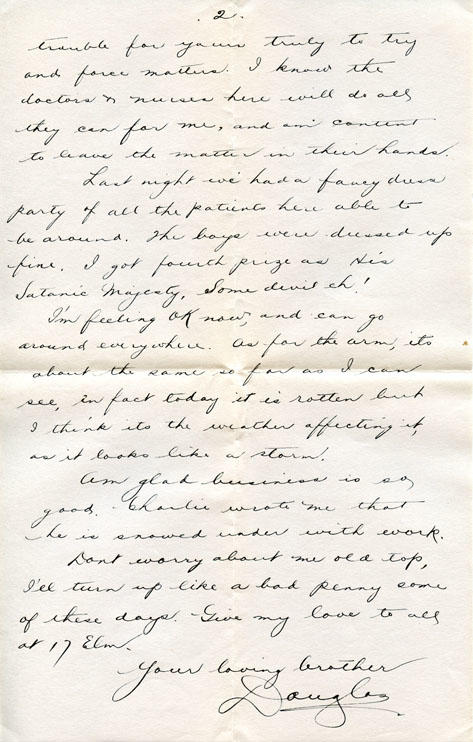 . 2 .
trouble for yours truly to try
and force matters. I know the
doctors & nurses here will do all
they can for me, and am content
to leave the matter in their hands.
Last night we had a fancy dress
party of all the patients here able to
be around. The boys were dressed up
fine. I got fourth prize as His
Satanic Majesty, Some devil eh!
I'm feeling OK now, and can go
around everywhere. As for the arm, its
about the same so far as I can
see, in fact today it is rotten but
I think its the weather affecting it,
as it looks like a storm.
Am glad business is so
good. Charlie wrote me that
he is snowed under with work.
Dont worry about me old top,
I'll turn up like a bad penny some
of these days. Give my love to all
at 17 Elm.
Your loving brother
Douglas